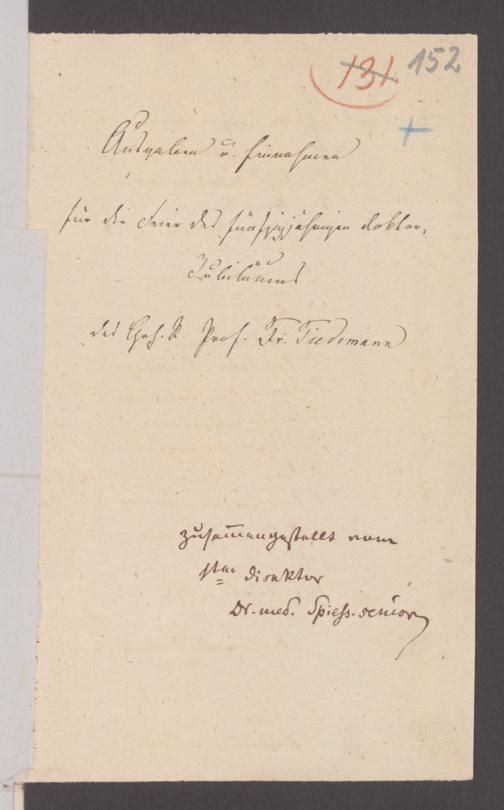 131 152
Ausgaben u. Einnahmen
für die Feier des fünfzigjährigen Doktor-
Jubiläums
des Geh. R. Prof. Fr. Tiedemann
zusammengestellt vom
1ten Direktor
Dr. med. Spiess. senior